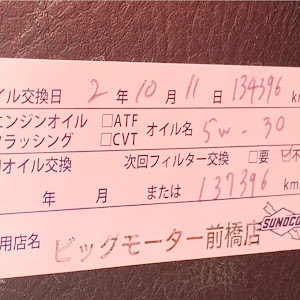 イル交換日 2 年 10 月 11 日 134396 km
エンジンオイル □ATF オイル名 5w-30
フラッシング □CVT
オイル交換 次回フィルター交換 □要 ☑不
年 月 または 137396 km
用店名 ビッグモーター前橋店 SUNOCO